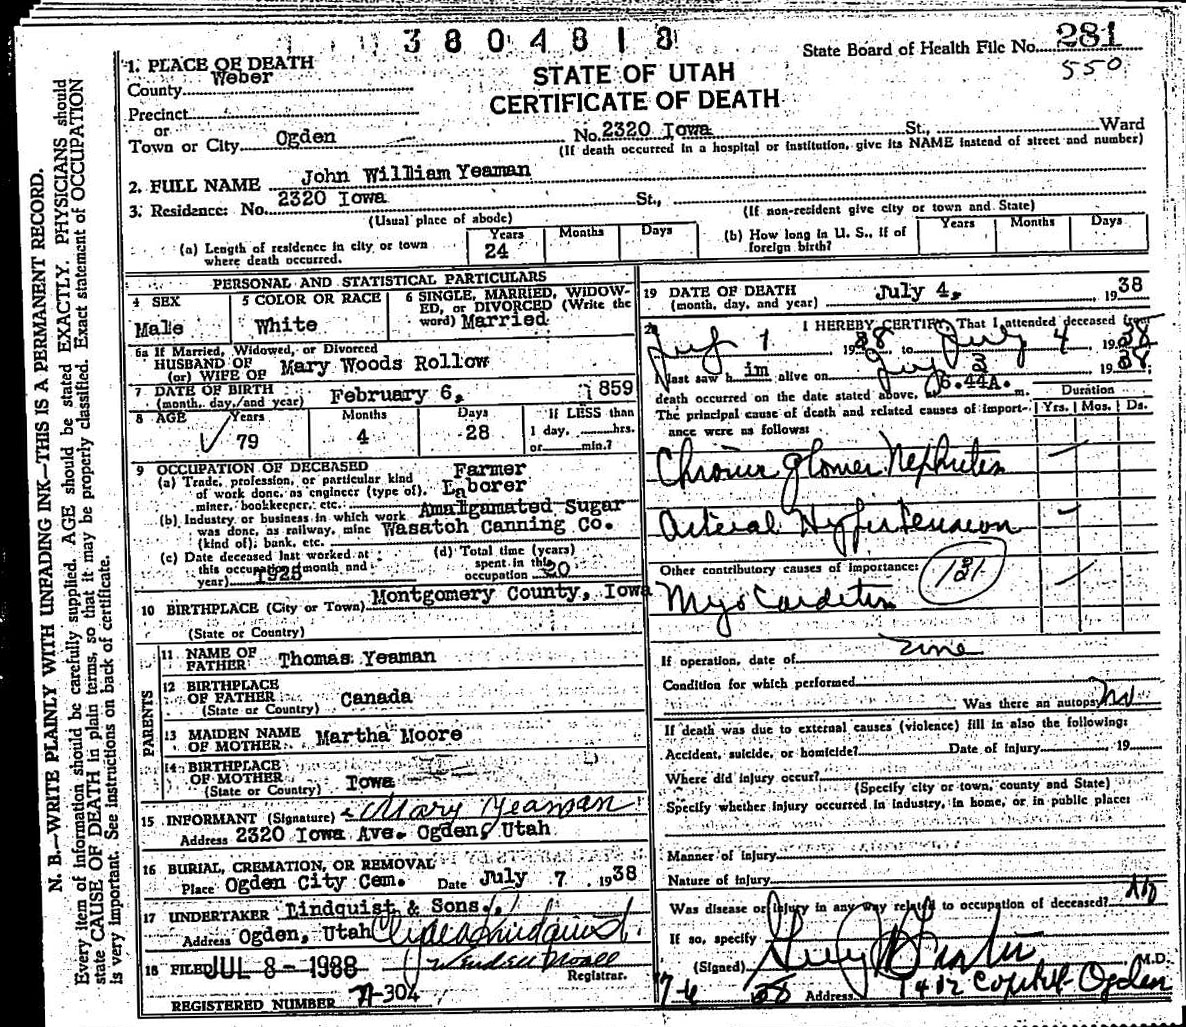 3804818
State Board of Health File No. 281
550
STATE OF UTAH
CERTIFICATE OF DEATH
1. PLACE OF DEATH
County Weber
Precinct
or
Town or City Ogden No. 2320 Iowa St., Ward
(If death occurred in a hospital or institution, give its NAME instead of street and number)
2. FULL NAME John William Yeaman
3. Residence: No. 2320 Iowa St.,
(Usual place of abode) (If non-resident give city or town and State)
(a) Length of residence in city or town where death occurred. Years 24 Months Days
(b) How long in U. S., if of foreign birth? Years Months Days
N. B.—WRITE PLAINLY WITH UNFADING INK—THIS IS A PERMANENT RECORD.
Every item of information should be carefully supplied. AGE should be stated EXACTLY. PHYSICIANS should
state CAUSE OF DEATH in plain terms, so that it may be properly classified. Exact statement of OCCUPATION
is very important. See instructions on back of certificate.
PERSONAL AND STATISTICAL PARTICULARS
4 SEX Male
5 COLOR OR RACE White
6 SINGLE, MARRIED, WIDOWED, or DIVORCED (Write the word) Married
6a If Married, Widowed, or Divorced
HUSBAND OF
(or) WIFE OF Mary Woods Rollow
7 DATE OF BIRTH
(month, day, and year) February 6, 1859
8 AGE Years 79 Months 4 Days 28 If LESS than
1 day, hrs.
or min.?
9 OCCUPATION OF DECEASED Farmer
(a) Trade, profession, or particular kind
of work done, as engineer (type of), Laborer
miner, bookkeeper, etc.
(b) Industry or business in which work Amalgamated Sugar
was done, as railway, mine Wasatch Canning Co.
(kind of); bank, etc.
(c) Date deceased last worked at this occupation (month and year) 1925
(d) Total time (years) spent in this occupation 20
10 BIRTHPLACE (City or Town) Montgomery County, Iowa
(State or Country)
PARENTS
11 NAME OF FATHER Thomas Yeaman
12 BIRTHPLACE OF FATHER Canada
(State or Country)
13 MAIDEN NAME OF MOTHER Martha Moore
14 BIRTHPLACE OF MOTHER Iowa
(State or Country)
15 INFORMANT (Signature) Mary Yeaman
Address 2320 Iowa Ave. Ogden, Utah
16 BURIAL, CREMATION, OR REMOVAL
Place Ogden City Cem. Date July 7, 1938
17 UNDERTAKER Lindquist & Sons.
Address Ogden, Utah Clyde Lindquist
18 FILED JUL 8 - 1938
Registrar.
REGISTERED NUMBER A-304
19 DATE OF DEATH
(month, day, and year) July 4, 1938
20 I HEREBY CERTIFY, That I attended deceased from
July 1 1938, to July 4 1938
I last saw him alive on July 3 1938;
death occurred on the date stated above, at 6.44A. m.
The principal cause of death and related causes of importance were as follows:
Duration
Yrs. Mos. Ds.
Chronic glomer Nephritis
Arterial Hypertension
Other contributory causes of importance: 131
Myocarditis
If operation, date of none
Condition for which performed
Was there an autopsy No
If death was due to external causes (violence) fill in also the following:
Accident, suicide, or homicide? Date of injury 19
Where did injury occur?
(Specify city or town, county and State)
Specify whether injury occurred in industry, in home, or in public place:
Manner of injury
Nature of injury
Was disease or injury in any way related to occupation of deceased? No
If so, specify
(Signed) M.D.
7-6 38 Address Ogden